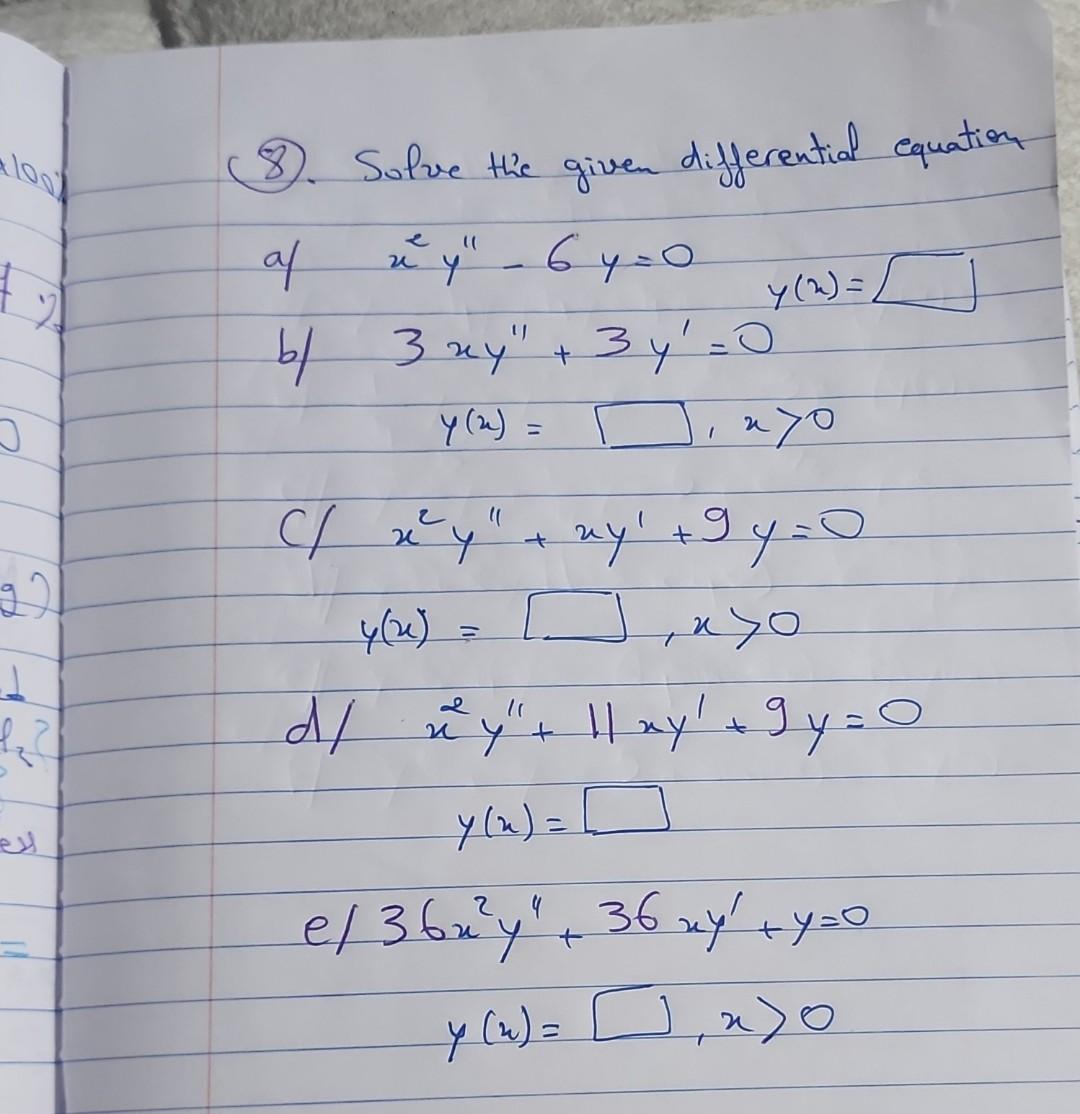 (8). Solve the given differential equation
a/ x²y'' - 6y=0
y(x)=
b/ 3xy'' + 3y' =0
y(x) = , x>0
c/ x²y'' + xy' +9y=0
y(x) = , x>0
d/ x²y'' + 11xy' + 9y=0
y(x)=
e/ 36x²y'' + 36xy' +y=0
y(x)= , x>0